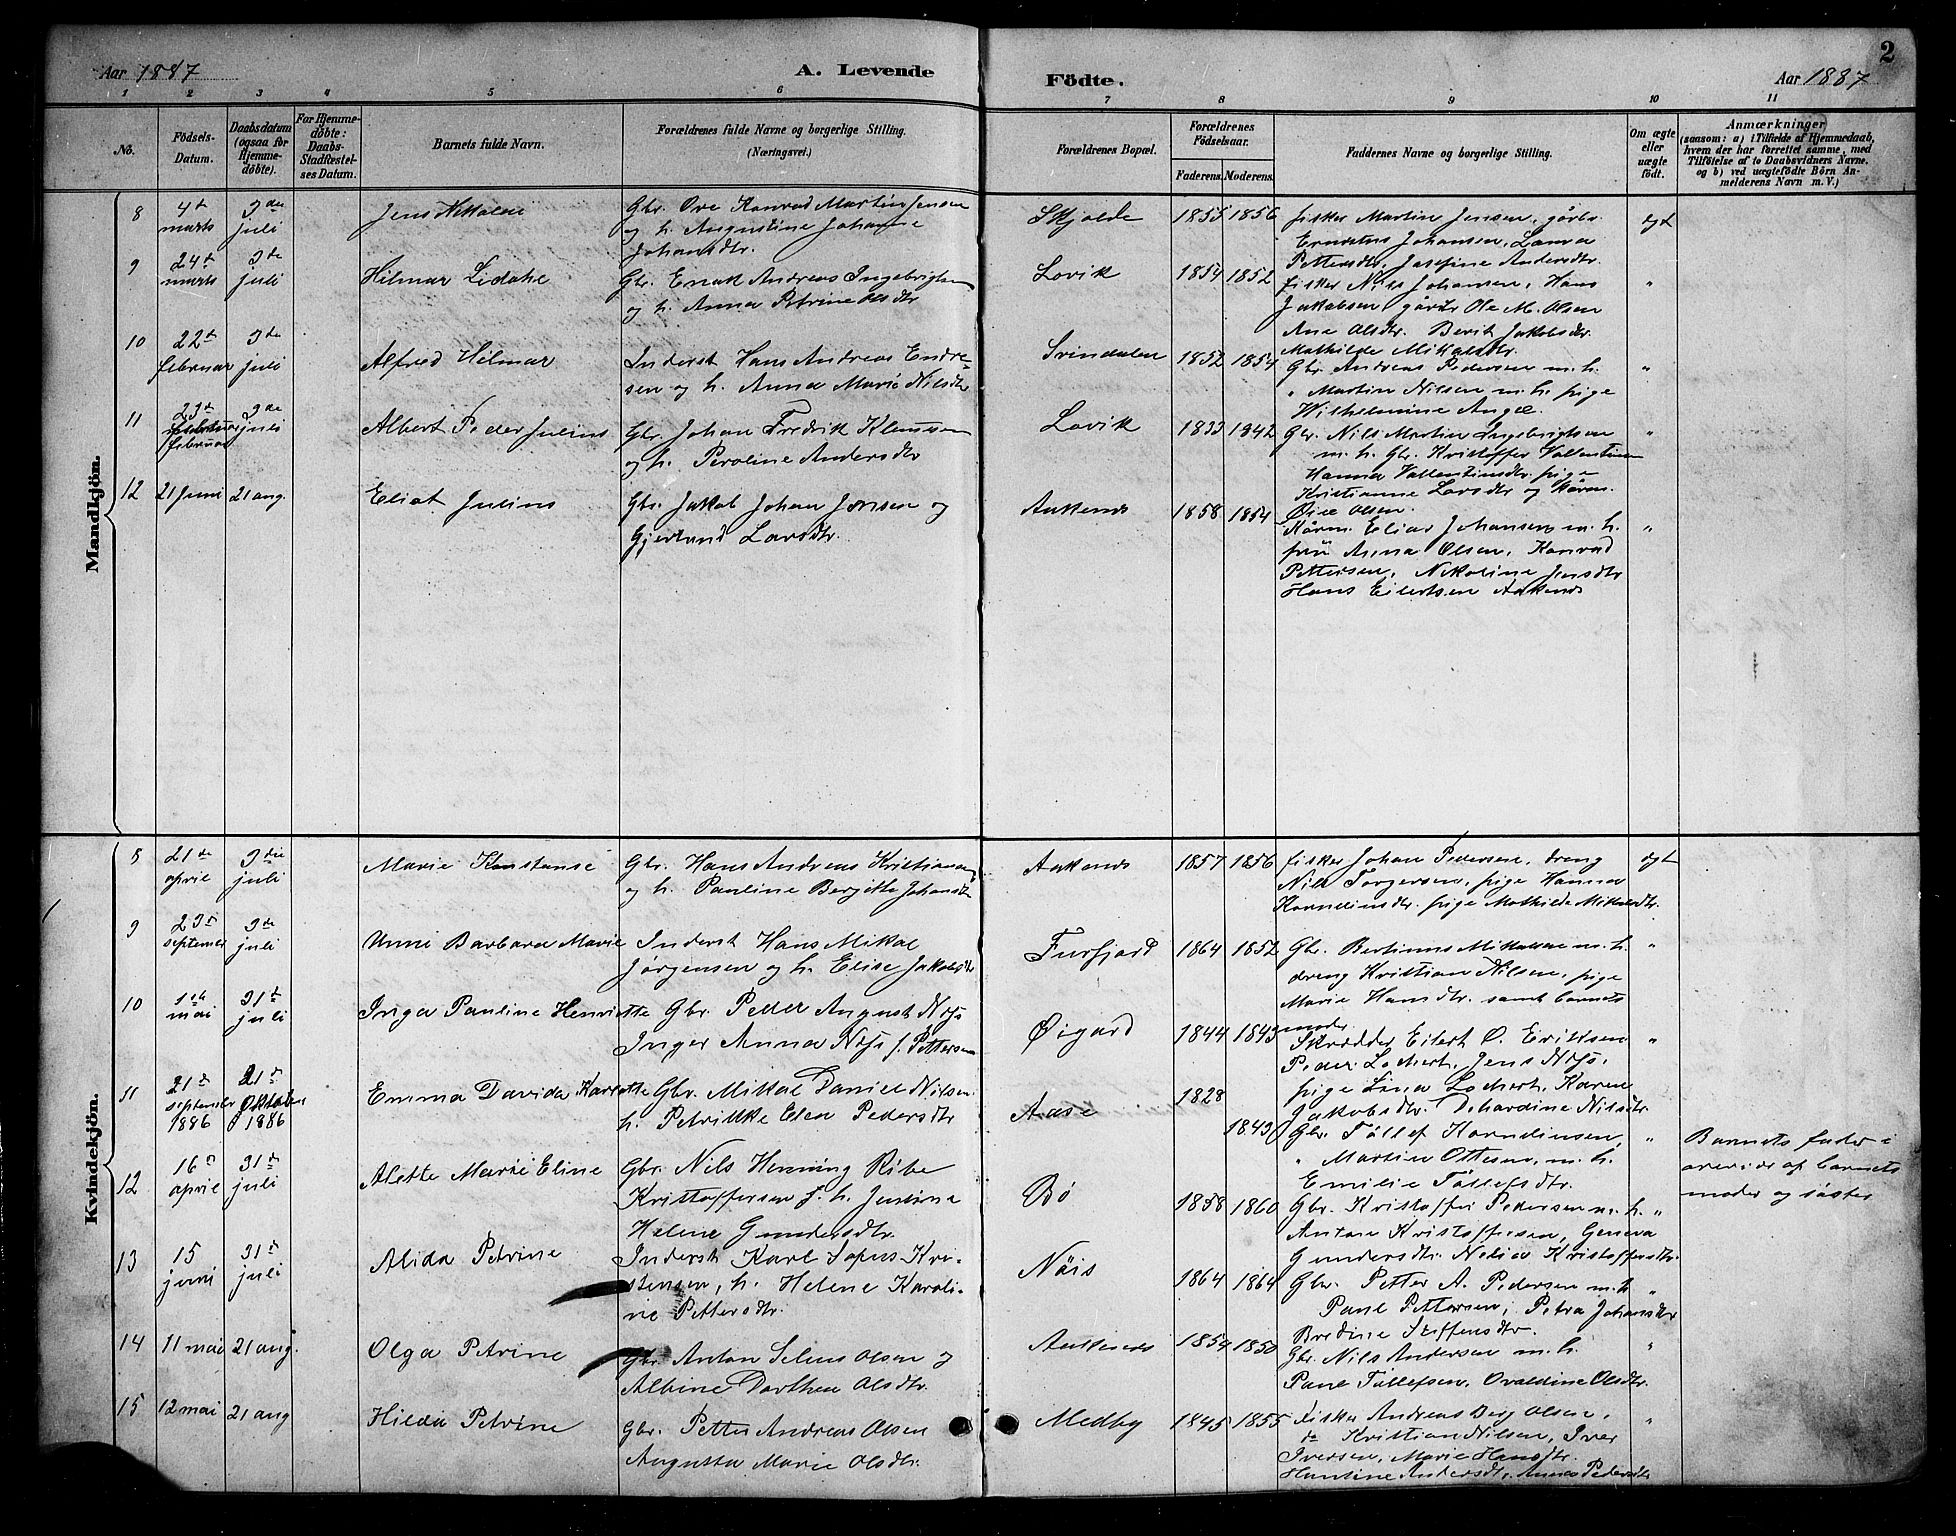 Aar 1887
A. Levende
Födte.
Aar 1887
2
1 2 3 4 5 6 7 8 9 10 11
No.
Födsels-
Datum.
Daabsdatum
(ogsaa for
Hjemme-
döbte).
For Hjemme-
döbte:
Daabs-
Stadfæstel-
ses Datum.
Barnets fulde Navn.
Forældrenes fulde Navne og borgerlige Stilling.
(Næringsvei.)
Forældrenes Bopæl.
Forældrenes
Födselsaar.
Faderens. Moderens.
Faddernes Navne og borgerlige Stilling.
Om ægte
eller
uægte
födt.
Anmærkninger
(saasom: a) i Tilfælde af Hjemmedaab,
hvem der har forrettet samme, med
Tilföielse af to Daabsvidners Navne.
og b) ved uægtefödte Börn An-
melderens Navn m. V.)
Mandkjön.
8
4de
marts
3die
juli
Jens Nikolai
Gbr. Ove Konrad Martin Jensen
og h. Augustine Johanne
Johansdtr.
Skjolde
1855 1856
fisker Martin Jensen, gårbr.
Johansen, Laura
Pettersdtr, Josefine Andersdtr.
ægt
9
24de
marts
3de
juli
Hilmar
Gbr. Enok Andreas Ingebrigtsen
og h. Anna Petrine Olsdtr
Lovik
1854 1852
fisker Nils Johansen, Hans
Jakobsen gårbr Ole M. Olsen
Ane Olsdtr. Berit Jakobsdtr.
Mathilde Mikalsdtr.
"
10
22de
februar
3de
juli
Alfred Hilmar
Inderst Hans Andreas Endre-
sen og h. Anna Marie Nilsdtr
Svindalen
1852 1854
Gbr Andreas Pedersen m. h.
" Martin Nilsen m. h. pige
Wilhelmine Angel.
"
11
23de
februar
3de
juli
Albert Peder Julius
Gbr. Johan Fredrik Klemmen
og h. Peroline Andersdtr
Lovik
1833 1842
Gbr. Nils Martin Ingebrigtsen
m. h. Gbr. Kristoffer Vallentinsen
Hanna Vallentinsdtr. pige
Kristianne Larsdtr og
Olsen.
"
12
21 juni
21 aug.
Eliot Julius
Gbr. Jakob Johan Jensen og
Gjertrud Larsdtr.
Aakenes
1858 1854
Elias Johansen m. h.
Anna Olsen, Konrad
Pettersen, Nikoline Jensdtr
Hans Eilertsen Aakenes
"
Kvindekjön.
8
21de
april
3die
juli
Marie Konstanse
Gbr. Hans Andreas Kristiansen
og h. Pauline Bergitte Johansdtr
Aakenes
1857 1856
fisker Johan Pedersen, dreng
Nils Torgersen, pige Hanna
Kornelinsdtr. pige Mathilde Mikalsdtr.
ægt
9
23de
septemer
3de
juli
Unni Barbara Marie
Inderst Hans Mikal
Jørgensen og h. Elise Jakobsdtr
Furfjord
1864 1852
Gbr. Bertinus Mikalsen m. h.
dreng Kristian Nilsen, pige
Marie Hansdtr. samt barnets
moder
"
10
1ste
mai
31de
juli
Inga Pauline Henriette
Gbr. Peder August
Inger Anna f. Pettersen
Øigard
1844 1843
Skrædder Eilert O. Eriksen
Peder Lochert, Jens
pige Lina Lochert, Karen
Jakobsdtr. Nilsdtr.
"
11
21de
septemer
1886
21de
Oktober
1886
Emma Davida Karlotte
Gbr. Mikal Daniel Nilsen
h. Petrikke Elea Pedersdtr
Aase
1828
1843
Gbr. Töllef Kornelinsen,
" Martin Ottesen, m. h.
Emilie Töllefsdtr.
"
Barnets fader i
af barnets
moder og söster
12
16de
april
31de
juli
Alette Marie Eline
Gbr. Nils Henning Ribe
Kristoffersen f. h. Justine
Helene Gundersdtr.
Bö
1858 1860
Gbr. Kristoffer Pedersen m. h.
Anton Kristoffersen, Geneva
Gundersdtr. Kristoffersdtr.
"
13
15
juni
31de
juli
Alida Petrine
Inderst Karl Kri-
stensen, h. Helene Karoli-
ne Pettersdtr.
Nöis
1864 1864
Gbr. Petter A. Pedersen m. h
Paul Pettersen, Petra Johansdtr
Bredine Steffensdtr.
"
14
11 mai
21 aug.
Olga Petrine
Gbr. Anton Selius Olsen og
Albine Dorthea Olsdtr.
Aakenes
1859 1850
Gbr. Nils Andersen m. h.
Paul Töllefsen, Ovaldine Olsdtr.
"
15
12 mai
21 aug
Hilda Petrine
Gbr. Petter Andreas Olsen
Augusta Marie Olsdtr.
Medby
1845 1855
Fisker Andreas Berg Olsen,
do Kristian Nilsen, Iver
Iversen, Marie Hansdtr.
Hansine Andersdtr, Anne Pedersdtr
"